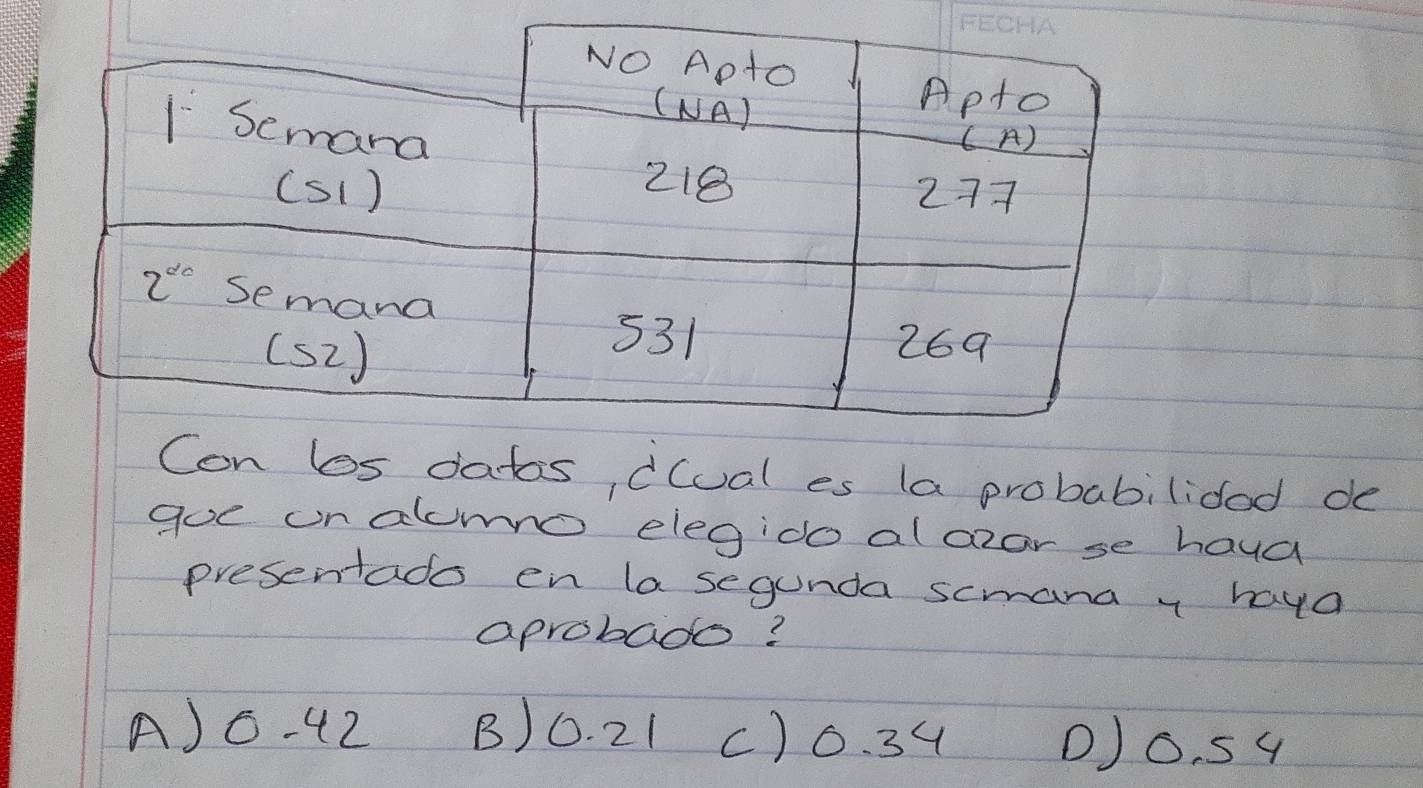 FECHA
NO Apto
(NA)
Apto
(A)
1ª Semana
(S1)
218
277
2da Semana
(S2)
531
269
Con los datos, ¿Cual es la probabilidad de
que un alumno elegido al azar se haya
presentado en la segunda semana y haya
aprobado?
A) 0.42 B) 0.21 C) 0.34 D) 0.54